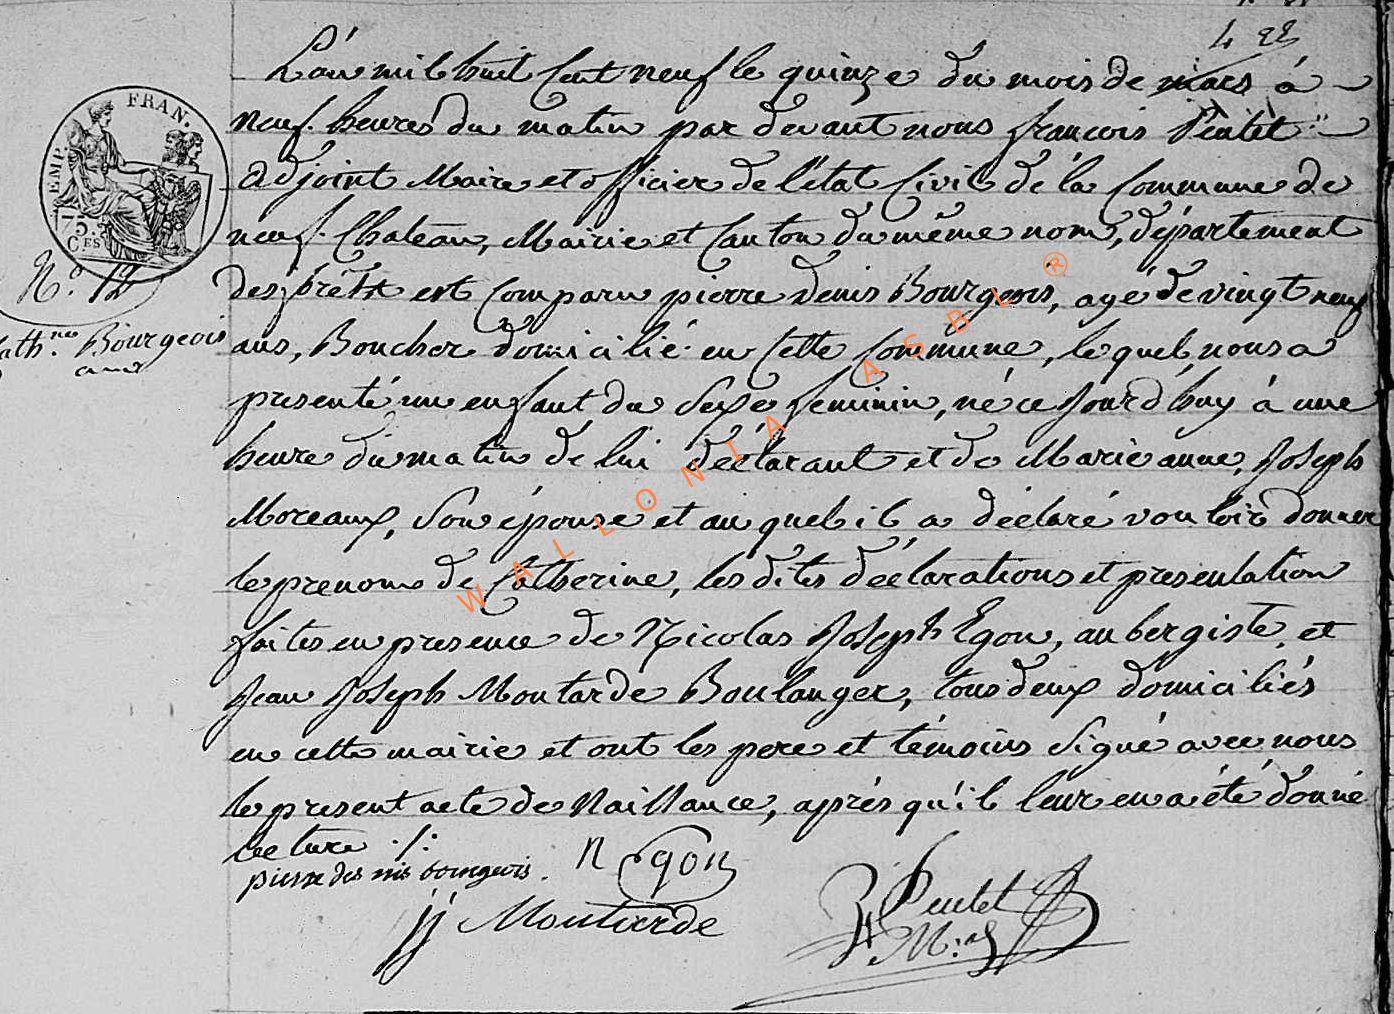 4 22
L'an mil huit Cent neuf le quinze du mois de mars à
neuf. heures du matin par devant nous françois Pentet
adjoint Maire et officier de l'état Civil de la Commune de
neuf. Chateau, Mairie et Canton du même nom, département
des forêts est comparu pierre denis Bourgeois, agé de vingt neuf
ans, Boucher domicilié en cette Commune, le quel nous a
presenté un enfant du Sexe feminin, né ce jourd'huy à une
heure du matin de lui déclarant et de Marie anne, Joseph
Moreaux, Son épouse et au quel il a déclaré vouloir donner
le prenom de Catherine, les dites déclarations et presentation
faites en presence de Nicolas Joseph Egon, aubergiste, et
Jean Joseph Moutarde Boulanger, tous deux domiciliés
en cette mairie et ont les pere et témoins Signé avec nous
le present acte de Naissance, après qu'il leur en a été donné
lecture ./:
pierre des nis bourgeois. N Egon
jj Moutarde
Pentet
EMP. FRAN.
75.
CES
N.° 12
Cath.ne Bourgeois
WALLONIA ASBL ®